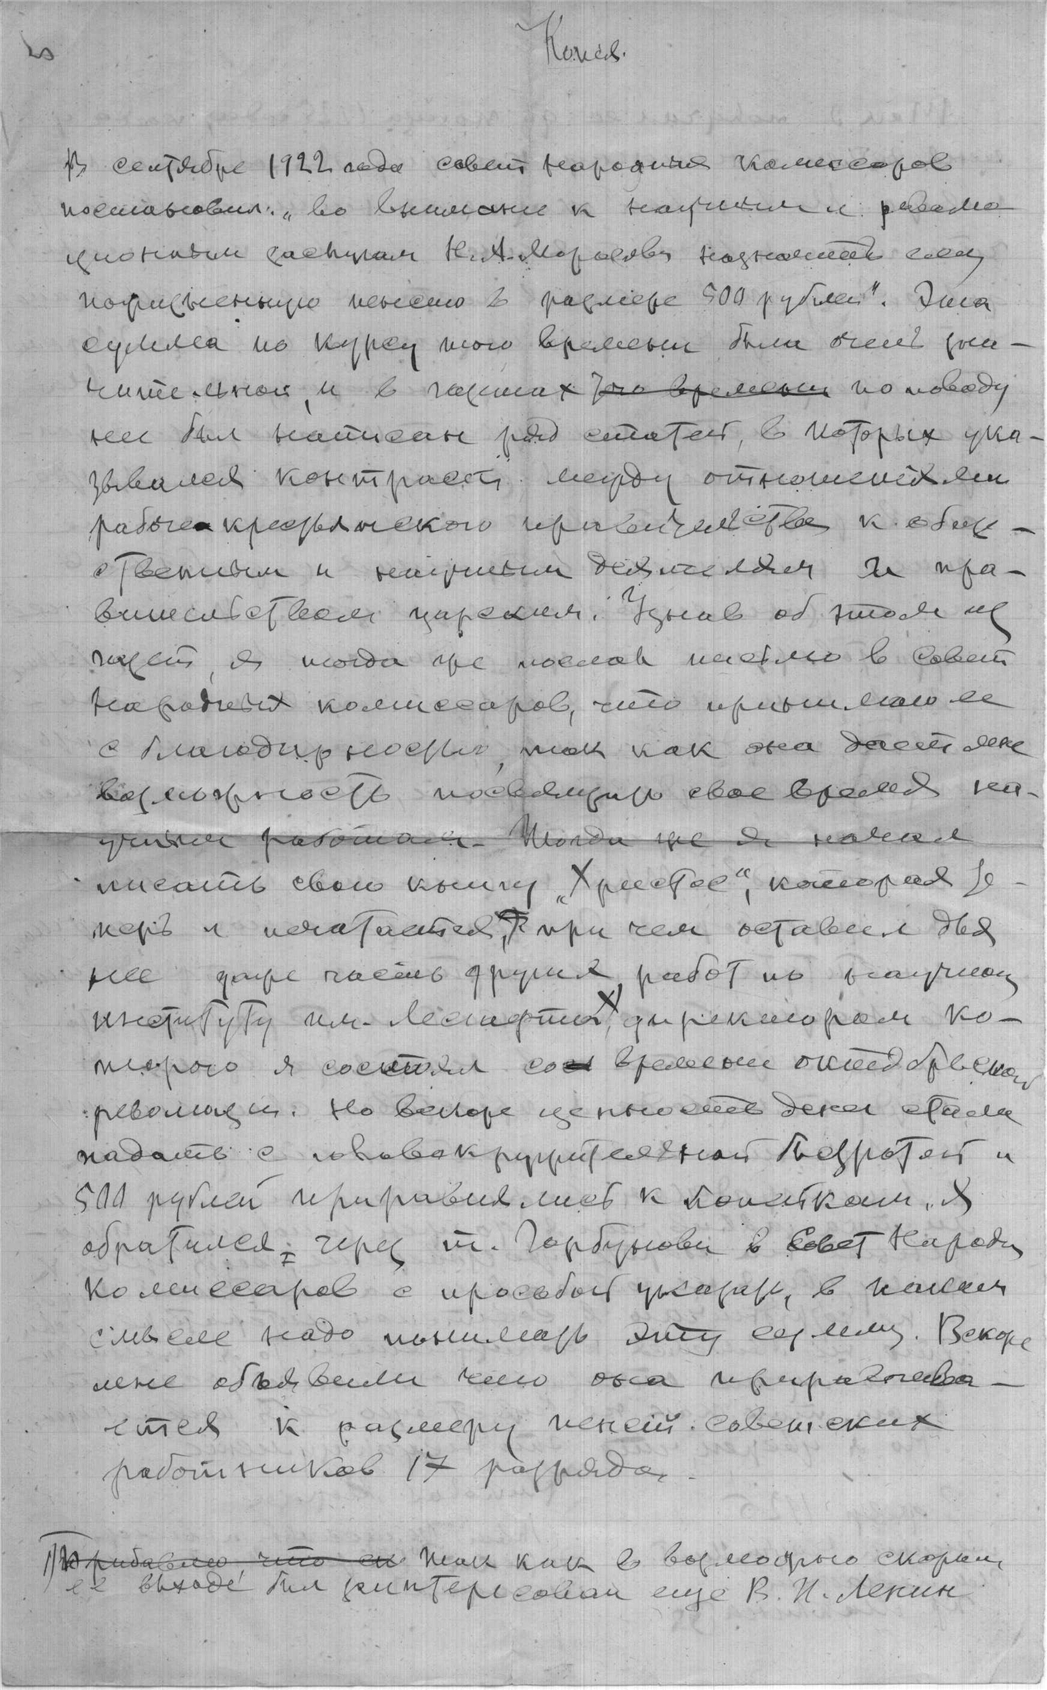 Копия.
В сентябре 1922 года совет народных комиссаров
постановил: „во внимание к научным и револю-
ционным заслугам Н.А. Морозова назначить ему
пожизненную пенсию в размере 500 рублей". Эта
сумма по курсу того времени была очень зна-
чительной, и в газетах того времени по поводу
нее был написан ряд статей, в которых ука-
зывался контраст между отношениями
рабоче крестьянского правительства к обще-
ственным и научным деятелям и пра-
вительством царским. Узнав об этом из
газет, я тогда же послал письмо в Совет
Народных комиссаров, что принимаю ее
с благодарностью, так как она дает мне
возможность посвящать свое время на-
учным работам. Тогда же я начал
писать свою книгу „Христос", которая те-
перь и печатается, при чем оставил для
нее даже часть других работ по научному
институту им. Лесгафта X, директором ко-
торого я состоял со времени октябрьской
революции. Но вскоре ценность денег стала
падать с головокружительной быстротой и
500 рублей приравнялись к копейкам. Я
обратился через т. Горбунова в Совет Народн
Комиссаров с просьбой указать, в каком
смысле надо понимать эту сумму. Вскоре
мне объявили что она приравнива-
ется к размеру пенсий советских
работников 17 разряда.
Прибавлю что ея так как в возможно скором
ее выходе был заинтересован еще В. И. Ленин